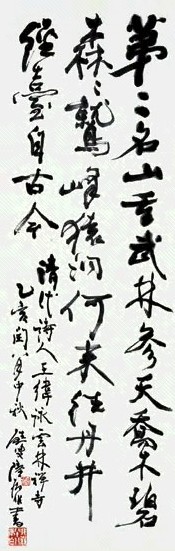 第一名山重武林参天乔木碧
森々鹫峰猿洞何来往丹井
经台自古今
清代诗人王纬咏云林禅寺
乙亥闰八月中秋
书